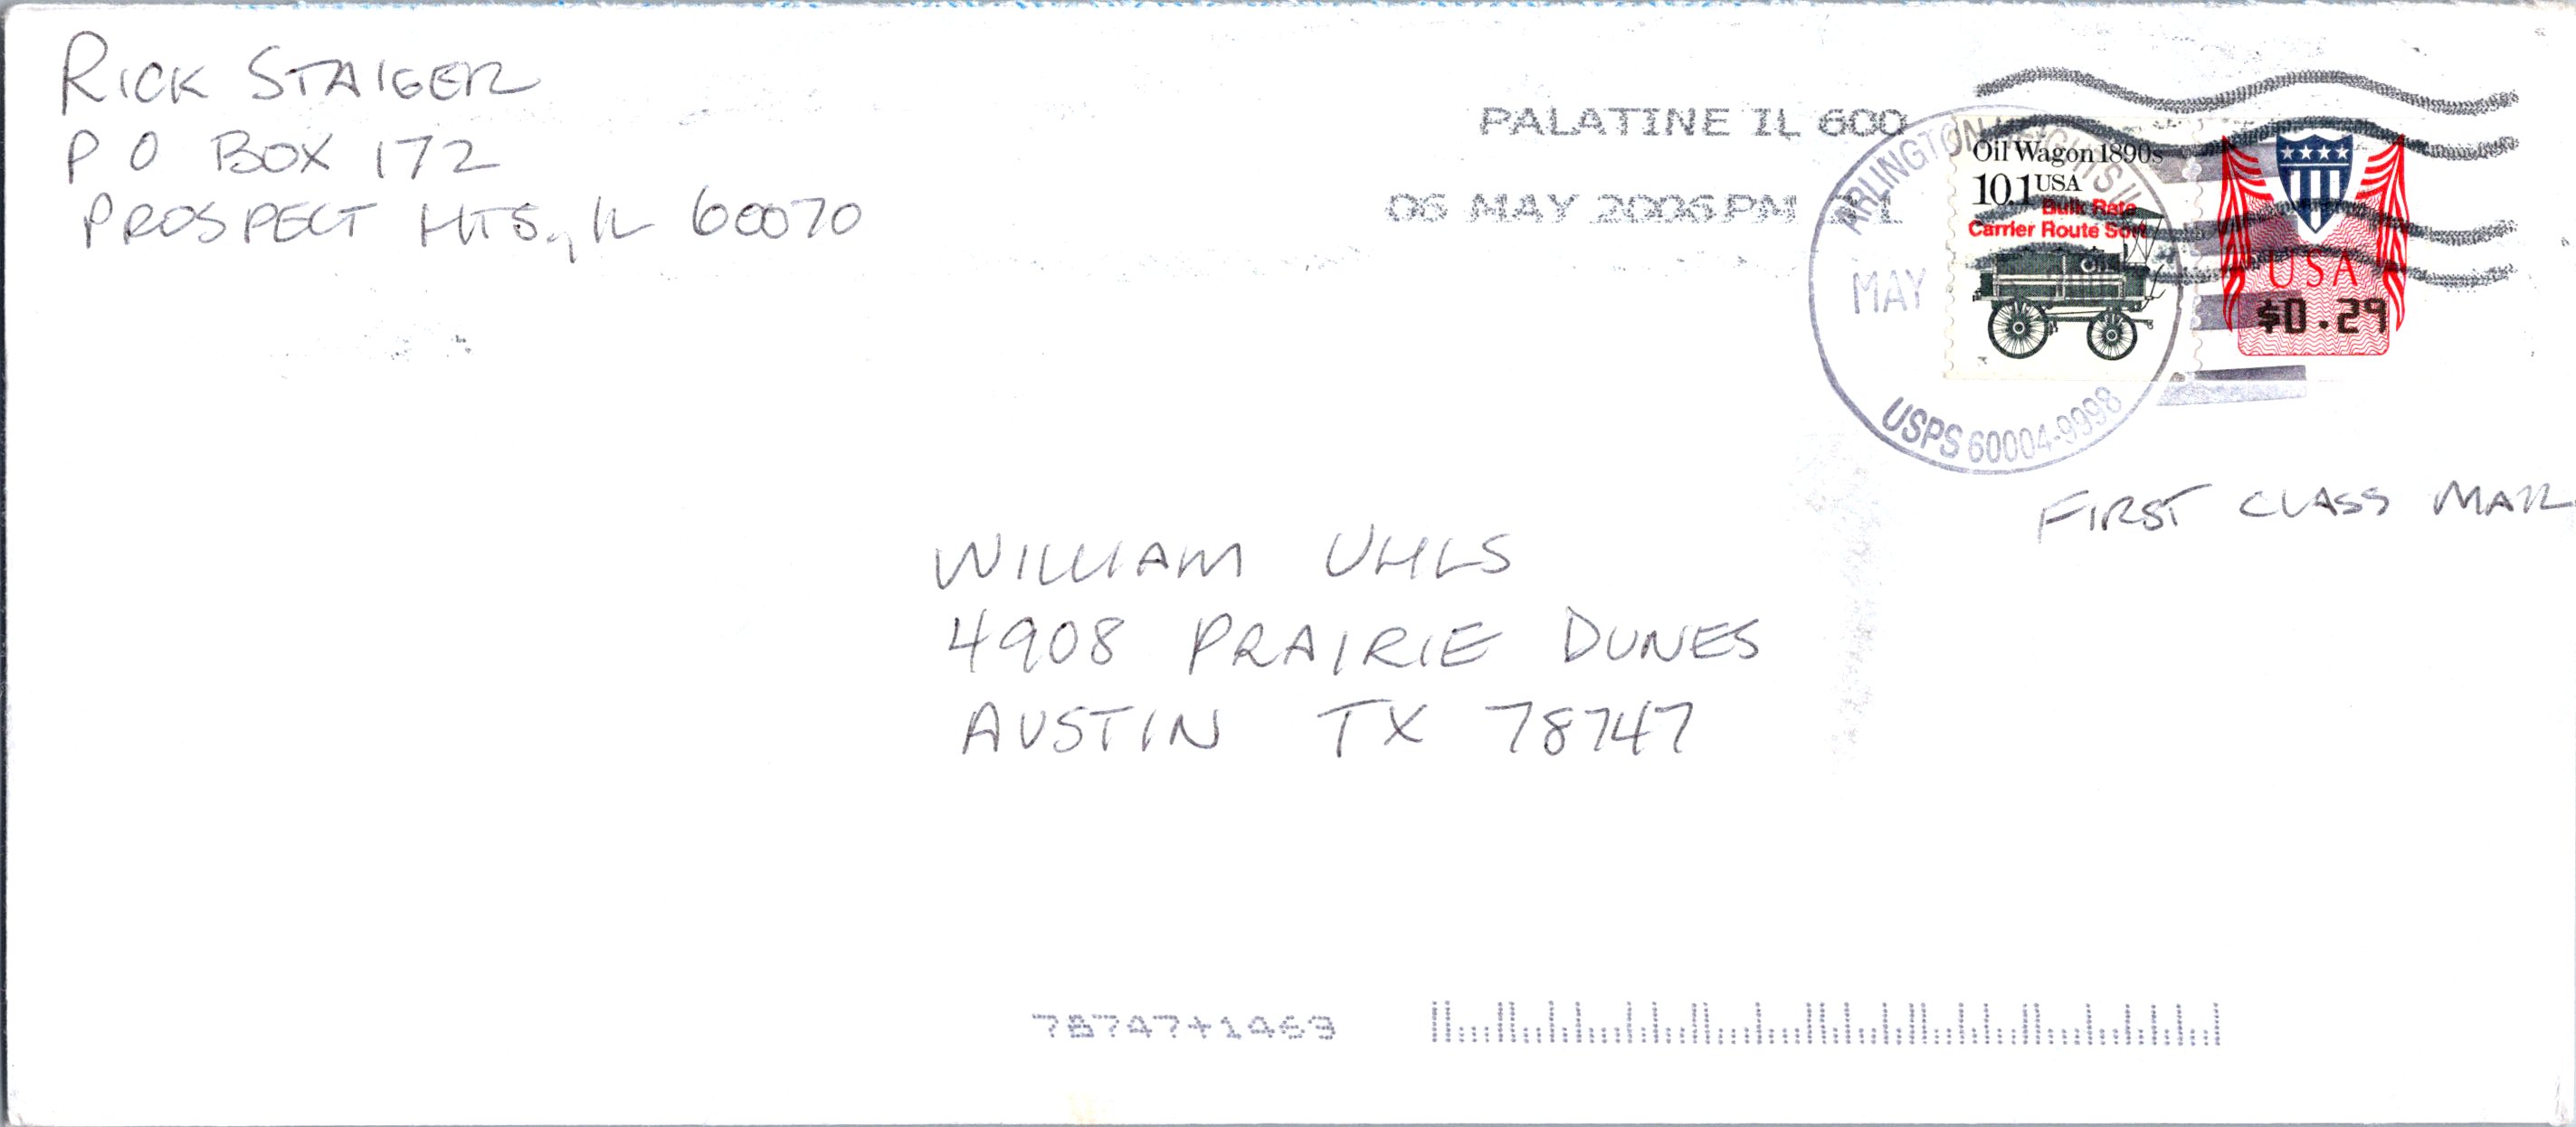 RICK STAIGER
P O BOX 172
PROSPECT HTS, IL 60070
PALATINE IL 600
06 MAY 2006 PM
ARLINGTON HEIGHTS IL
MAY
USPS 60004-9998
Oil Wagon 1890s
10.1 USA
Bulk Rate
Carrier Route Sort
USA
$0.29
FIRST CLASS MAIL
WILLIAM UHLS
4908 PRAIRIE DUNES
AUSTIN TX 78747
78747+1463